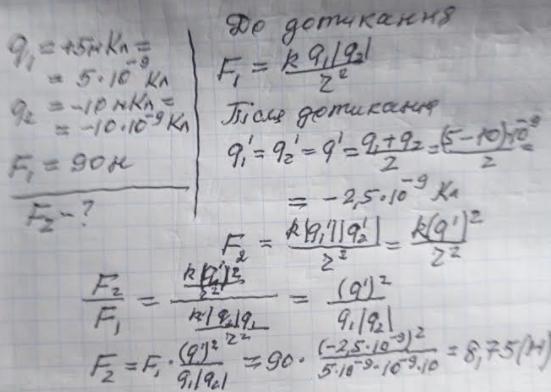 q₁ = +5нКл =
= 5·10⁻⁹ Кл
q₂ = -10 нКл =
= -10·10⁻⁹ Кл
F₁ = 90н
F₂ - ?
До дотикання
F₁ = k q₁|q₂| / r²
Після дотикання
q₁' = q₂' = q' = (q₁+q₂)/2 = (5-10)·10⁻⁹/2 =
= -2,5·10⁻⁹ Кл
F₂ = k|q₁'||q₂'| / r² = k(q')² / r²
F₂/F₁ = (k(q')²/r²) / (k|q₂|q₂/r²) = (q')² / q₁|q₂|
F₂ = F₁ · (q')²/q₁|q₂| = 90 · (-2,5·10⁻⁹)² / 5·10⁻⁹·10⁻⁹·10 = 8,75 (Н)